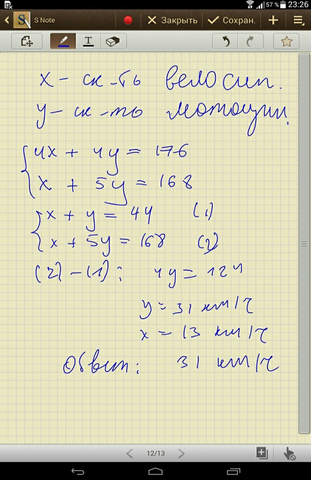 57% 23:26
S Note Закрыть Сохран.
T
x – ск-ть велосип.
y – ск-ть мотоцикл.
4x + 4y = 176
x + 5y = 168
x + y = 44 (1)
x + 5y = 168 (2)
(2) – (1): 4y = 124
y = 31 км/ч
x = 13 км/ч
Ответ: 31 км/ч
12/13